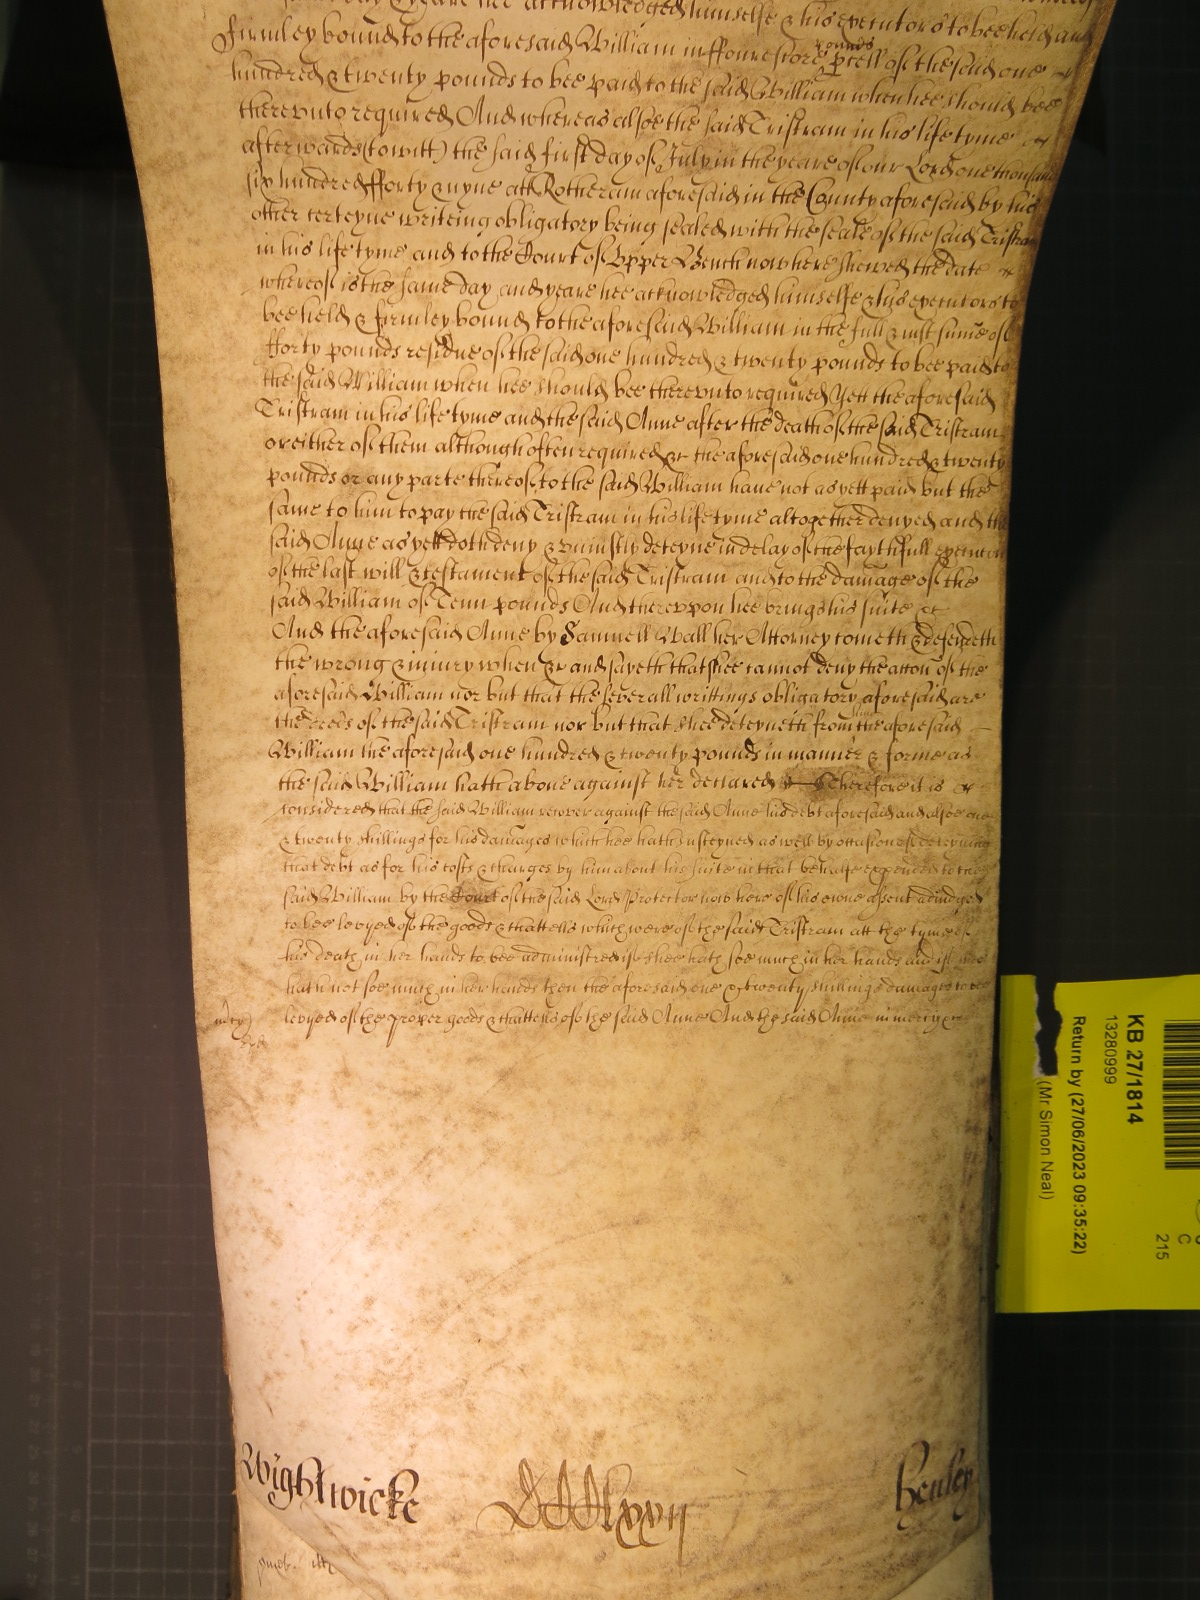 day & yeare hee acknowledged himselfe & his executors to bee held and
firmley bound to the aforesaid William in ffourescore pounds pcell of the said one
hundred & twenty pounds to bee paid to the said William when hee should bee
therevnto required And whereas alsoe the said Tristram in his life tyme &
afterwards (to witt) the said first day of July in the yeare of our Lord one thousand
six hundred fforty & nyne att Rotheram aforesaid in the County aforesaid by his
other certeyne writeing obligatory being sealed with the seale of the said Tristram
in his life tyme and to the Court of Vpper Bench now here shewed the date &
whereof is the same day and yeare hee acknowledged himselfe & his executors to
bee held & firmley bound to the aforesaid William in the full & iust sume of
fforty pounds residue of the said one hundred & twenty pounds to bee paid to
the said William when hee should bee therevnto required Yett the aforesaid
Tristram in his life tyme and the said Anne after the death of the said Tristram
or either of them although often required &c the aforesaid one hundred & twenty
pounds or any parte thereof to the said William haue not as yett paid but the
same to him to pay the said Tristram in his life tyme altogether denyed and the
said Anne as yett doth deny & vniustly deteyne in delay of the faythfull execution
of the last will & testament of the said Tristram and to the damage of the
said William of Tenn pounds And therevpon hee brings his suite &c
And the aforesaid Anne by Samuell Wall her Attorney cometh & defendeth
the wrong & iniury when &c and sayeth that shee cannot deny the accon of the
aforesaid William nor but that the severall writtings obligatory aforesaid are
the deeds of the said Tristram nor but that shee deteyneth from the aforesaid
William the aforesaid one hundred & twenty pounds in manner & forme as
the said William hath aboue against her declared Therefore it is &
considered that the said William recover against the said Anne his debt aforesaid and alsoe one
& twenty shillings for his damages which hee hath susteyned as well by occasion of deteyning
that debt as for his costs & charges by him about his suite in that behalfe expended to the
said William by the Court of the said Lord Protector now here of his owne assent adiudged
to bee levyed of the goods & chattells which were of the said Tristram att the tyme of
his death in her hands to bee administred if shee hath soe much in her hands and if shee
hath not soe much in her hands then the aforesaid one & twenty shillings damages to bee
levyed of the proper goods & chattells of the said Anne And the said Anne in mercy &c
mercy
Wightwicke
Henley
KB 27/1814
13280999
Return by (27/06/2023 09:35:22)
(Mr Simon Neal)
C
215